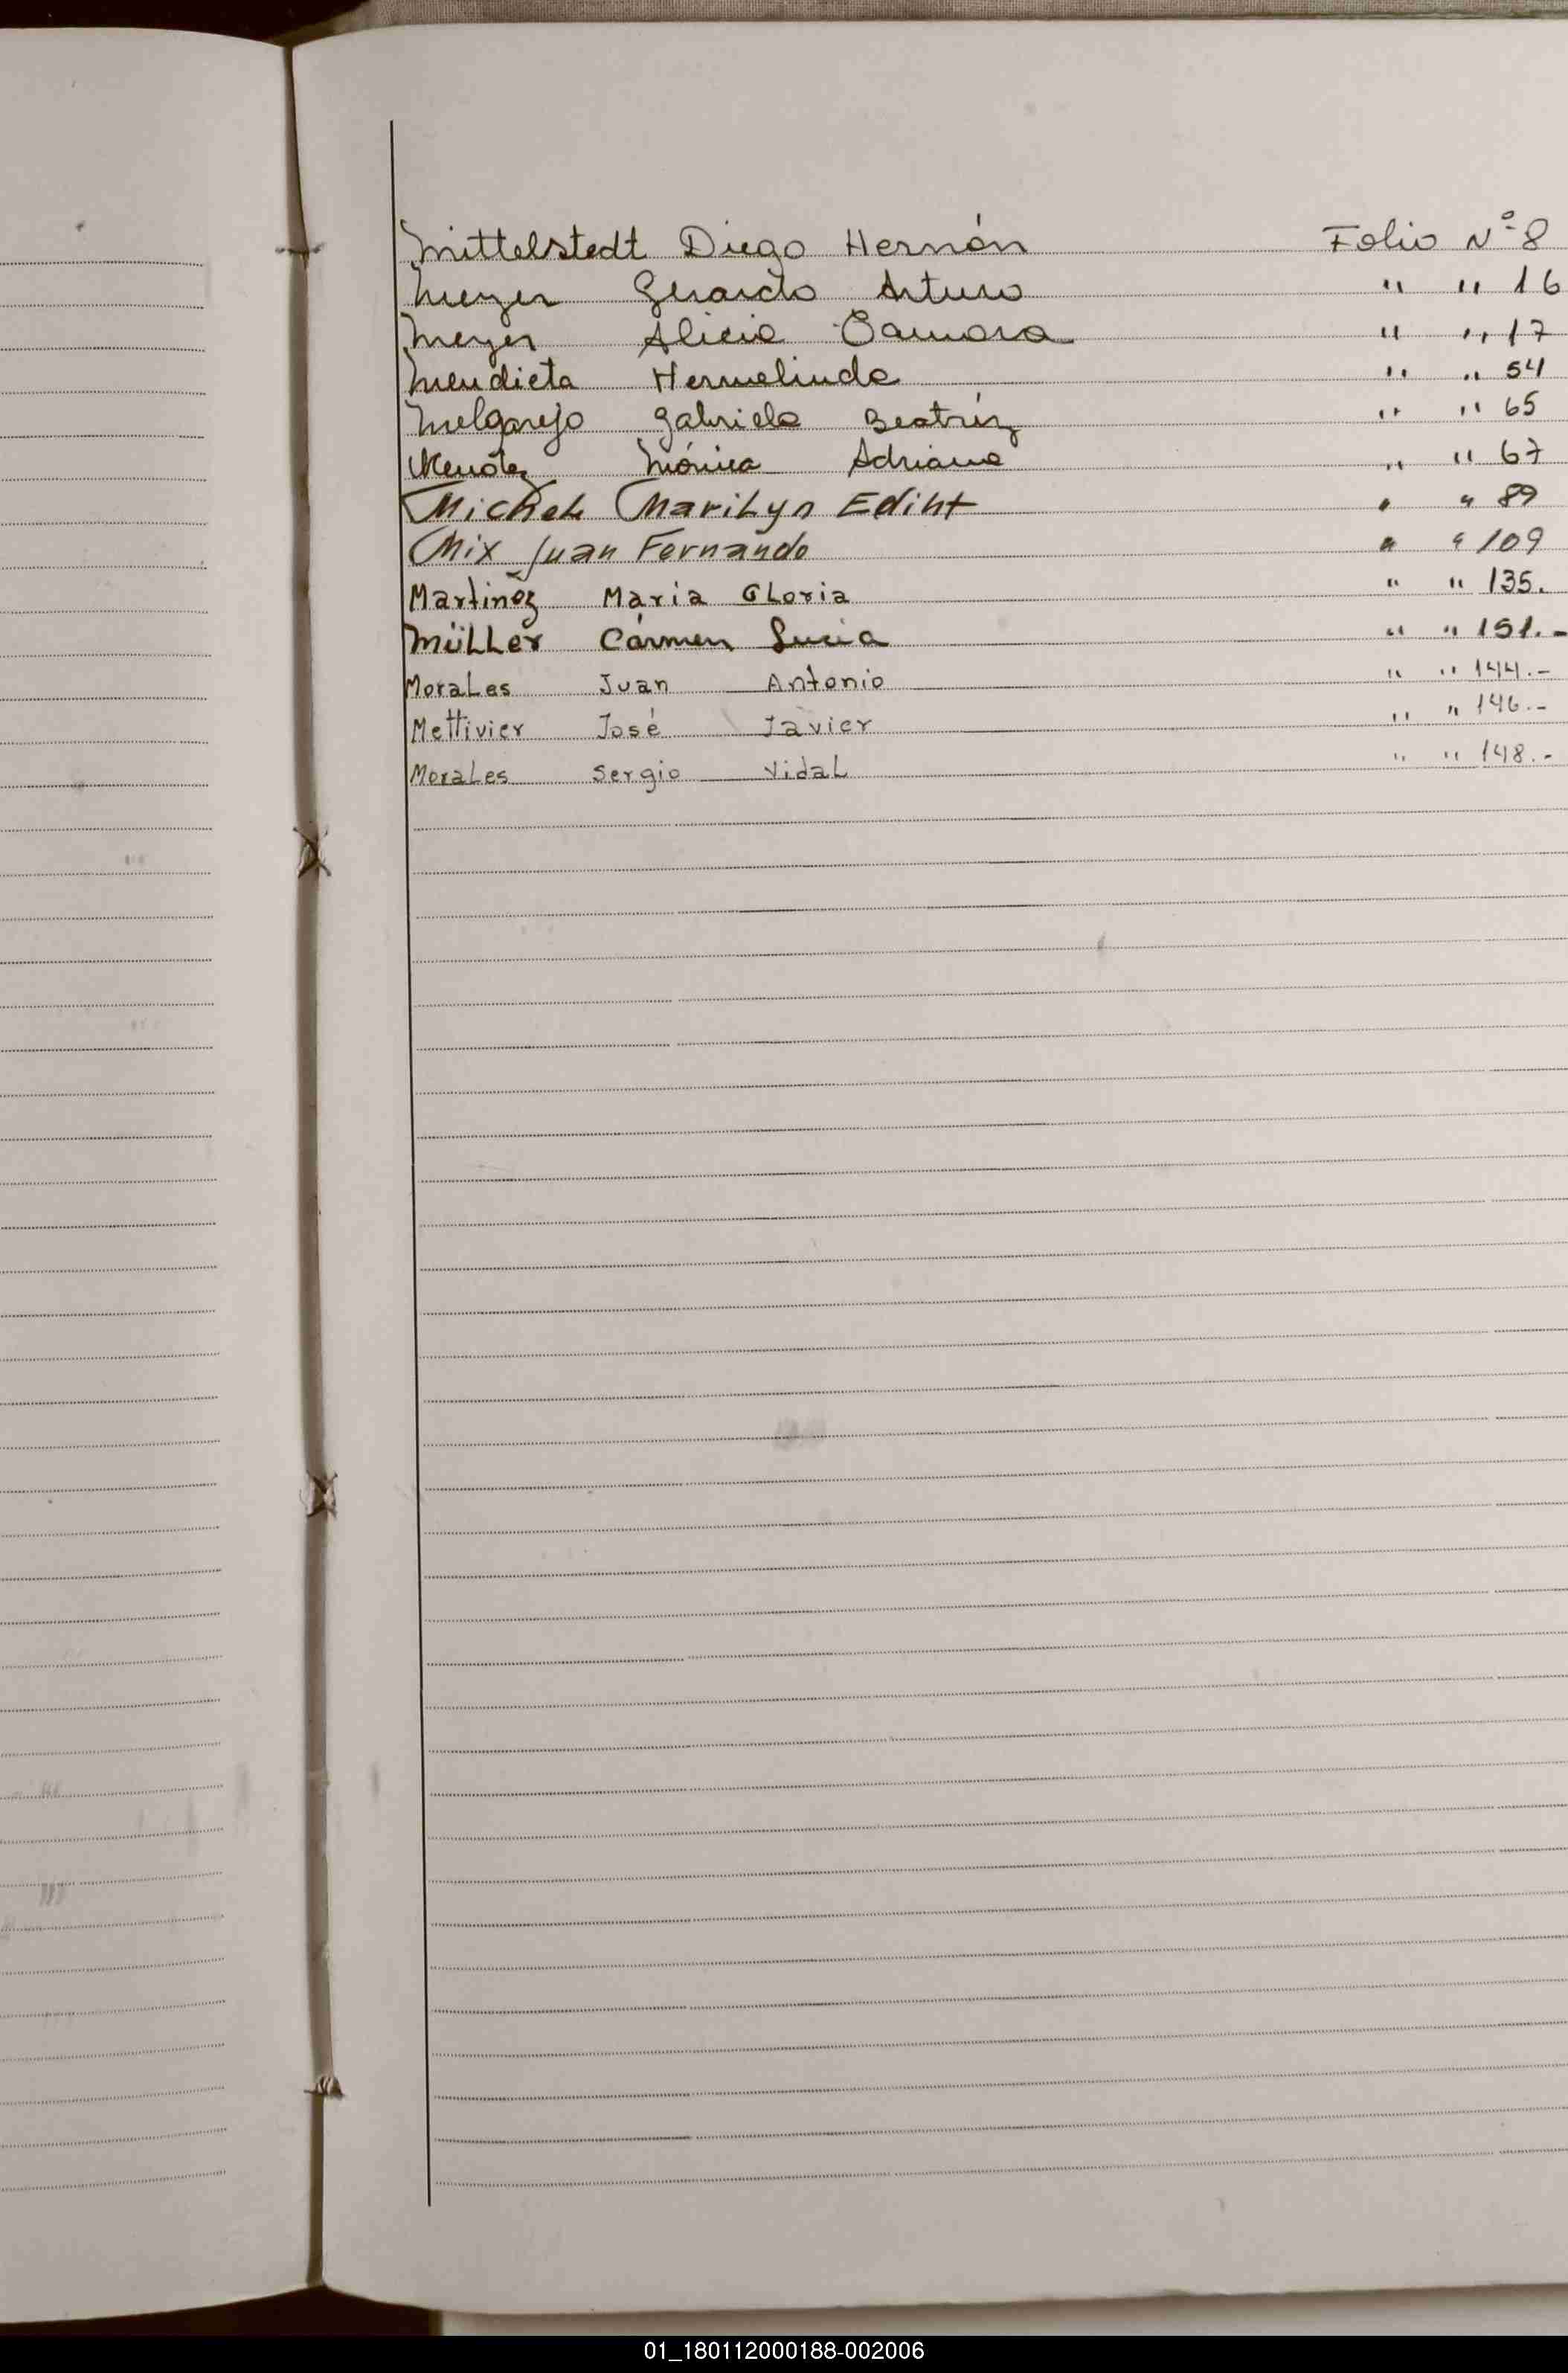 Mittelstedt Diego Hernán Folio Nº 8
Meyer Gerardo Arturo " " 16
Meyer Alicia " " 17
Mendieta Hermelinda " " 54
Melgarejo Gabriela Beatríz " " 65
Mónica Adriana " " 67
Michel Marilyn Ediht " " 89
Mix Juan Fernando " " 109
Martinez Maria Gloria " " 135.
Müller Cármen Lucia " " 151.-
Morales Juan Antonio " " 144.-
Mettivier José Javier " " 146.-
Morales Sergio Vidal " " 148.-
01_180112000188-002006